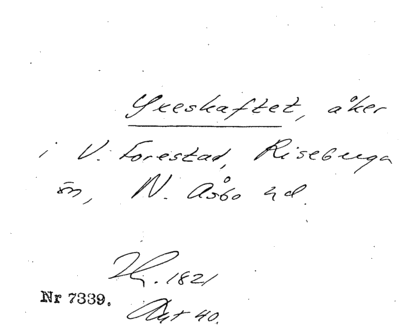 Yxeskaftet, åker
i V. Forestad, Riseberga
sn, N. Åsbo hd.
1821
Nr 7339.
Akt 40.